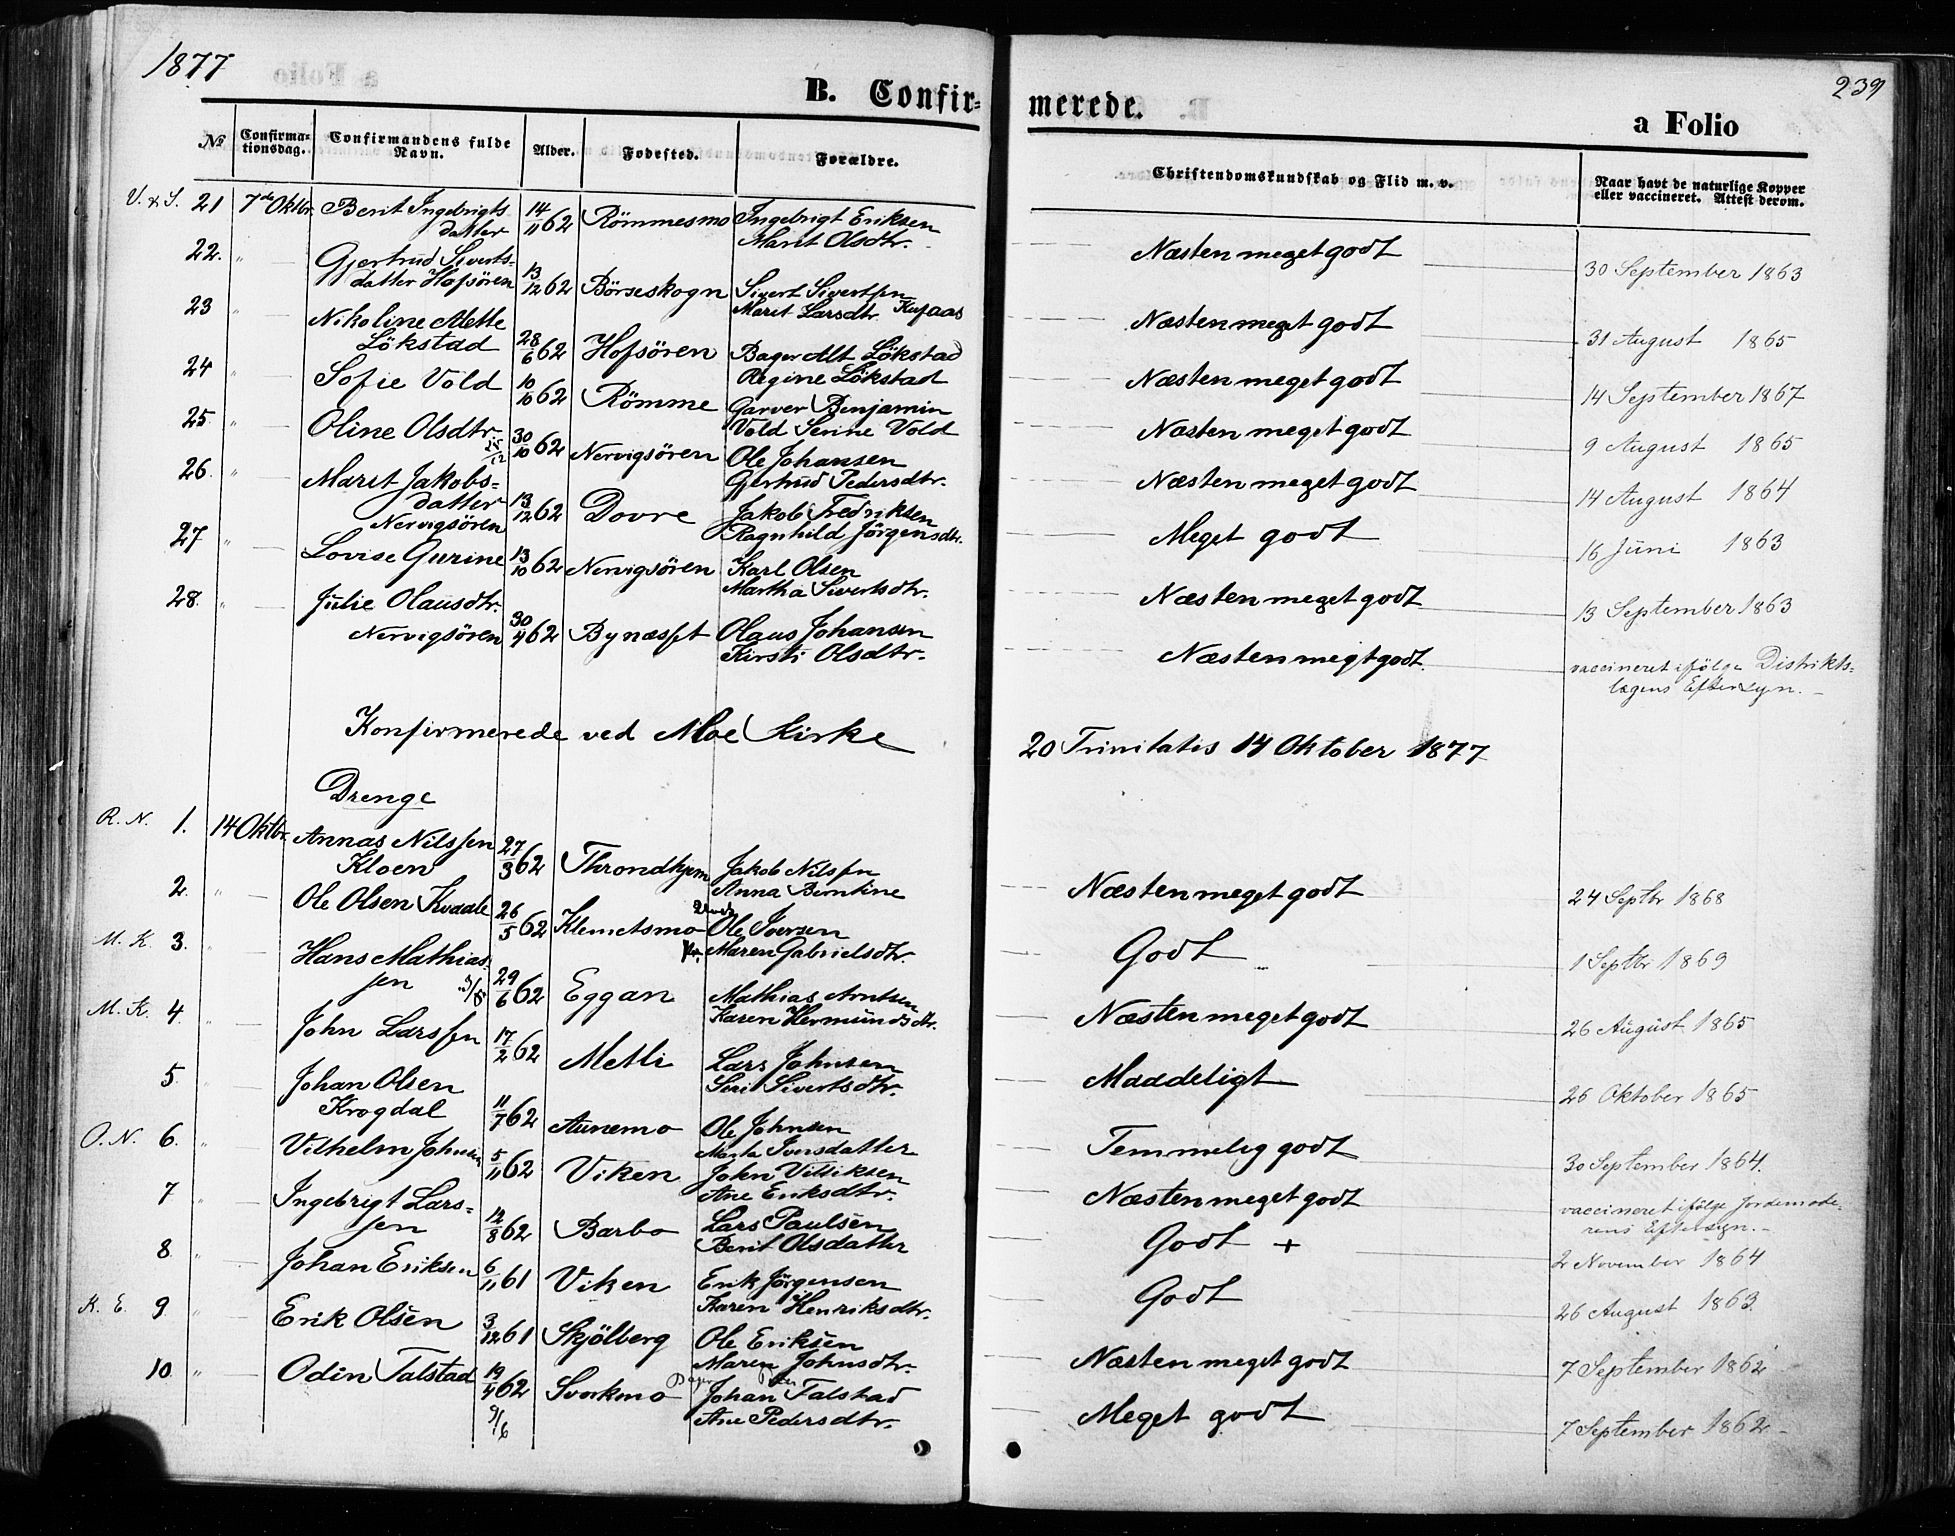 1877
239
B. Confir-
merede.
a Folio
№
Confirma-
tionsdag.
Confirmandens fulde
Navn.
Alder.
Fødested.
Forældre.
Christendomskundskab og Flid m. v.
Naar havt de naturlige Kopper
eller vaccineret. Attest derom.
V. & S. 21 7de Oktbr. Berit Ingebrigts 14/11 62 Römmesmo Ingebrigt Eriksen
datter Marit Olsdtr.
Næsten meget godt 30 September 1863
22. " Gjertrud Siverts- 13/12 62 Börseskogn Sivert Sivertsen
datter Hofsören Marit Larsdtr.
Næsten meget godt 31 August 1865
23 " Nikoline Mette 28/6 62 Hofsören Bager Alt Lökstad
Lökstad Regine Lökstad
Næsten meget godt 14 September 1867
24 " Sofie Vold 10/10 62 Römme Garver Benjamin
Vold Serine Vold
Næsten meget godt 9 August 1865
25. " Oline Olsdtr. 30/10 62 Nervigsören Ole Johansen
Gjertrud Pedersdtr.
Næsten meget godt 14 August 1864
26. " Marit Jakobs- 13/12 62 Dovre Jakob Fredriksen
datter Ragnhild Jörgensdtr.
Nervigsören
Meget godt 16 Juni 1863
27 " Lovise Gurine 13/10 62 Nervigsören Karl Olsen
Martha Sivertsdtr.
Næsten meget godt 13 September 1863
28. " Julie Olausdtr. 30/4 62 Bynæsset Olaus Johansen
Nervigsören Kirsti Olsdtr.
Næsten megt godt. vaccineret ifölge Distrikts-
lægens Eftersyn.
Konfirmerede ved Moe Kirke
20 Trinitatis 14 Oktober 1877
Drenge
R. N. 1. 14 Oktbr. Annas Nilssen 27/3 62 Throndhjem Jakob Nilsen
Kloen Anna Berntine
Næsten meget godt 24 Septbr 1868
2. " Ole Olsen Kvaale 26/5 62 Klemetsmo Ole Iversen
Maren Gabrielsdtr.
Godt 1 Septbr 1869
M. K. 3. " Hans Mathias- 29/6 62 Eggan Mathias Arntsen
sen Karen Hermundsdtr.
Næsten meget godt 26 August 1865
M. K. 4 " John Larssen 17/2 62 Metli Lars Johnsen
Seri Sivertsdtr.
Maadeligt 26 Oktober 1865
5. " Johan Olsen 11/7 62 Aunemo Ole Johnsen
Krogdal Marta Iversdatter
Temmelig godt 30 September 1864.
O. N. 6. " Vilhelm Johnsen 5/11 62 Viken John Villiksen
Ane Eriksdtr.
Næsten meget godt vaccineret ifölge Jordemode-
rens Eftersyn.
7 " Ingebrigt Lars- 12/8 62 Barbo Lars Paulsen
sen Berit Olsdatter
Godt + 2 November 1864
8 " Johan Eriksen 6/11 61 Viken Erik Jörgensen
Karen Henriksdtr.
Godt 26 August 1863.
K. E. 9. " Erik Olsen 3/12 61 Skjölberg Ole Eriksen
Maren Johnsdtr.
Næsten meget godt 7 September 1862
10. " Odin Talstad 19/4 62 Svorkmo Johan Talstad
9/6 Ane Pedersdtr.
Meget godt 7 September 1862